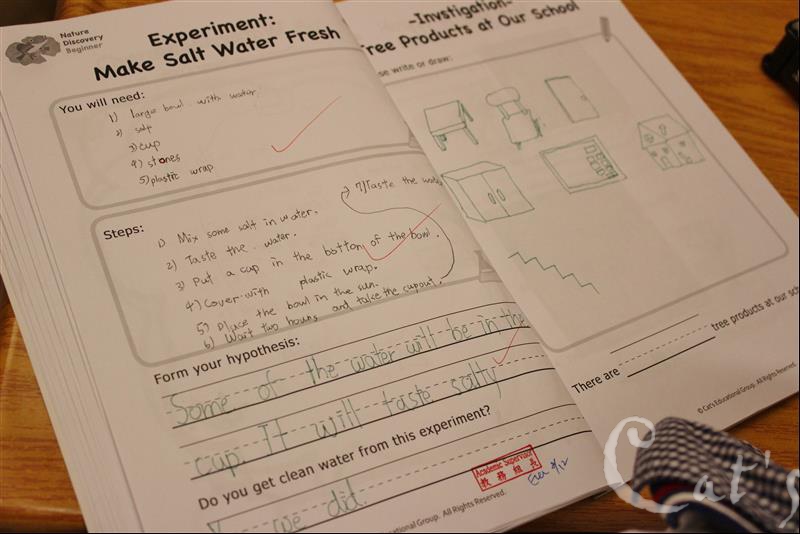 Nature
Discovery
Beginner
Experiment:
Make Salt Water Fresh
You will need:
1) large bowl with water
2) salt
3) cup
4) stones
5) plastic wrap
Steps:
1) Mix some salt in water.
2) Taste the water.
3) Put a cup in the bottom of the bowl.
4) Cover with plastic wrap.
5) Place the bowl in the sun.
6) Wait two hours and take the cup out.
7) Taste the wate
Form your hypothesis:
Some of the water will be in the
cup. It will taste salty
Do you get clean water from this experiment?
we did.
Academic Supervisor
教務組長
8/12
Educational Group. All Rights Reserved.
-Invstigation-
Tree Products at Our School
se write or draw:
There are tree products at our scho
© Cat's Educational Group. All Rights Reserved.
Cat's